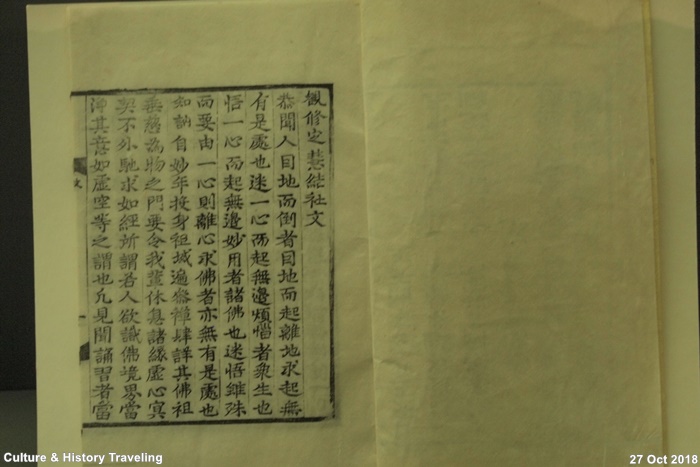 勸修定慧結社文
恭聞人因地而倒者因地而起離地求起無
有是處也迷一心而起無邊煩惱者衆生也
悟一心而起無邊妙用者諸佛也迷悟雖殊
而要由一心則離心求佛者亦無有是處也
知訥自妙年投身祖域遍叅禪肆詳其佛祖
垂慈爲物之門要令我輩休息諸緣虛心冥
契不外馳求如經所謂若人欲識佛境界當
淨其意如虛空等之謂也凡見聞誦習者當
文
Culture & History Traveling
27 Oct 2018